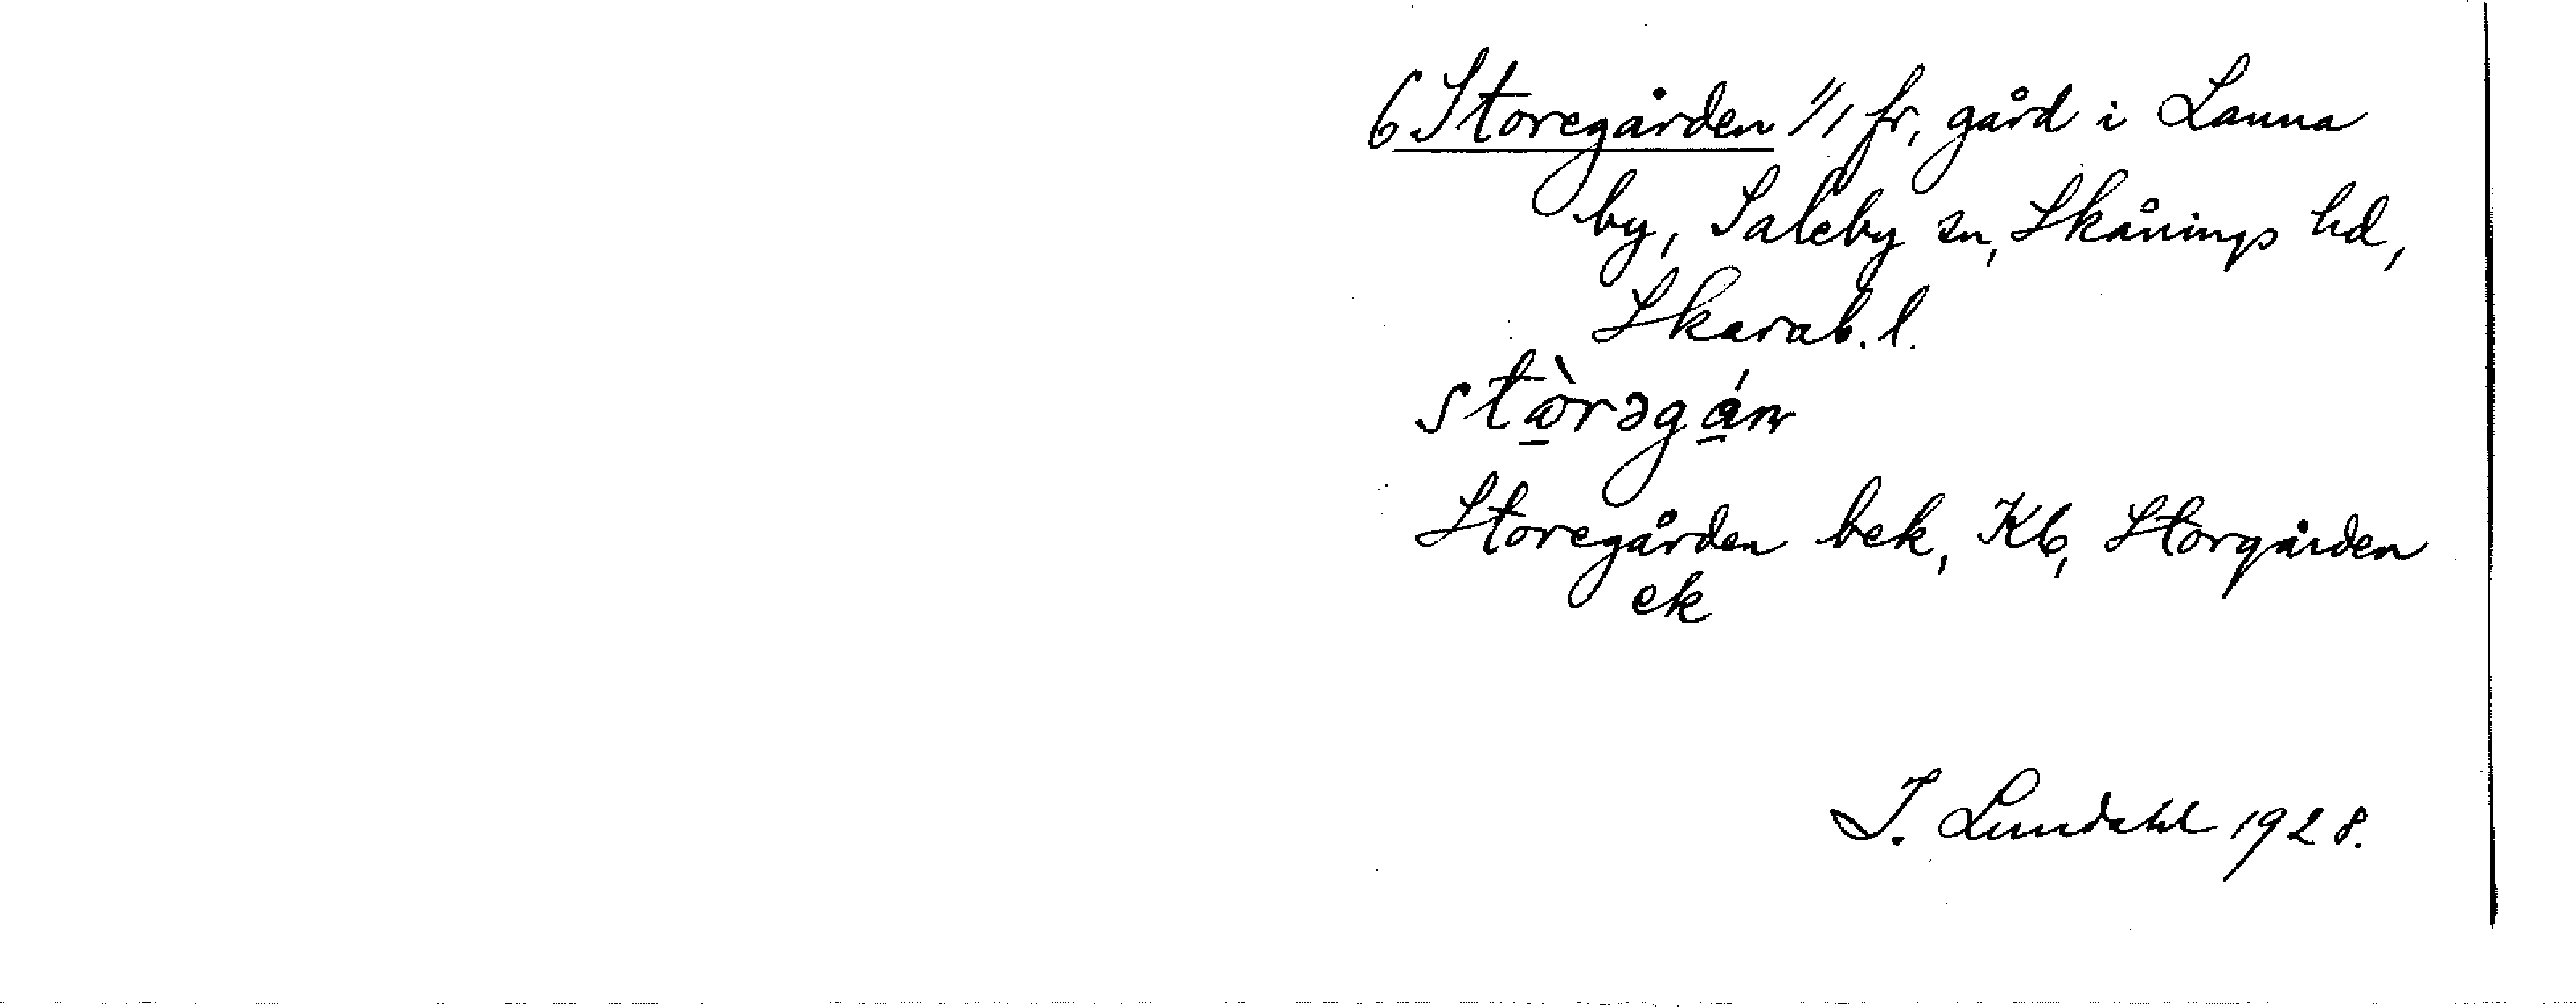 6 Storegården 1/1 fr, gård i Lanna
by, Saleby sn, Skånings hd,
Skarab. l.
stòrəgán
Storegården bek, Kb, Storgården
ek
I. Lundahl 1928.